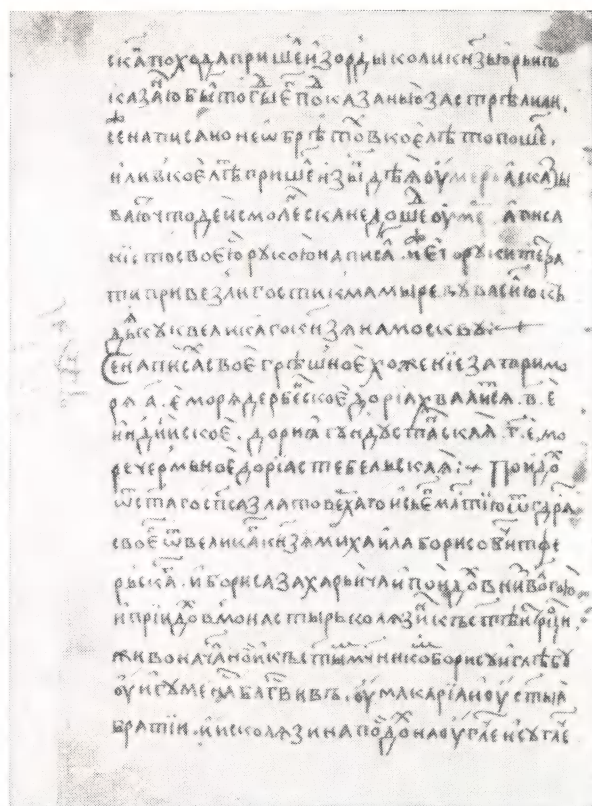 скаⷢ похода пришеⷧ и҆зорды коли кн҃зь ю҆рьи по
каза҃нїю бы тогды е҆ⷢ поⷣ казанью застрѣлили.
се написано не ѡ҆брѣтоⷯ в кое҆ лѣто поше҃.
и҆ли в кое҆ лѣ пришеⷧ и҆зы҆дѣя ᲂу҆меръ а҆ сказы
ваю҆ что деи смоле҃ска не дошеⷣ ᲂу҆ме. а҆ писа
нїе то своею҆ рукою написа. и҆ е҆го рукы те тетра
ти привезли гости к мамыреву васи҃ю къ
дья҆ку к великаго кн҃зя на москву:
Се написаⷯ свое҆ грѣшное҆ хоженїе за три мо
ря .а҃. е҆ море дербе҃ское҆ дорїа҆ хвалиⷮска҆я .в҃. е҆
и҆ндѣиское҆. дорїа҆ гундуста҃ская. г҃. е҆. мо
ре чермьное҆ дорїа стебельская: Поидоⷯ
ѿ ст҃аго сп҃са златоверхаго и҆ сь е҆ⷢ млⷭтїю ѿ гⷭдря
свое҆ⷢ ѿ великаⷢ кн҃зя михаила борисовича тфе
рьскаⷢ. и҆ бориса захарьича и҆ поидоⷯ вниз волгою
и҆ прїидоⷯ в монастырь колязи҃ къ ст҃ѣи трⷪци.
живоначалнои҆ и къ ст҃ым мч҃никоⷨ борису и҆ глѣбу
ᲂу҆ и҆гумена бл҃гвивъ. ᲂу҆ макарїа и҆ ᲂу҆ ст҃ыа҆
братїи. и҆ ис колязина поидоⷯ на ᲂу҆гле҃ и҆ с угле